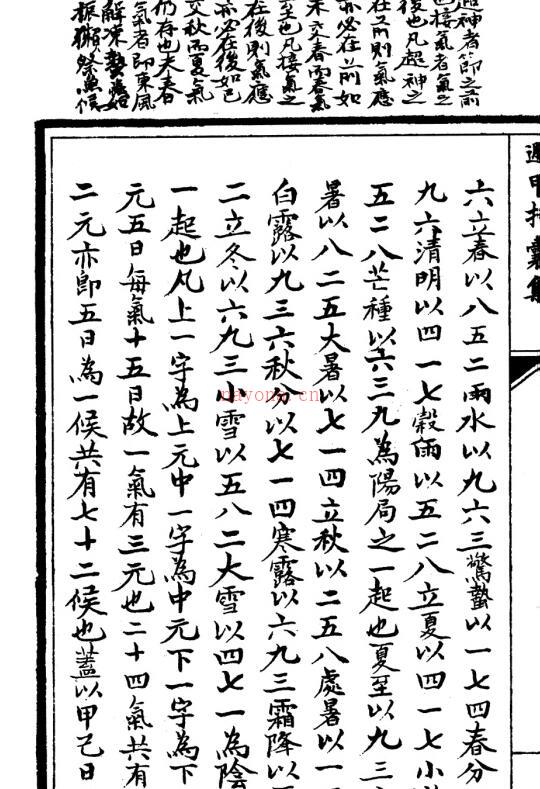 神者節之前
也接氣者氣之
後也凡超神之
在前則氣應
亦必在前如
未交春而春氣
至也凡接氣之
在後則氣應
亦必在後如已
交秋而夏氣
仍存也夫春
氣者即東風
解凍蟄始
振獺祭魚候
遁甲括囊集
六立春以八五二雨水以九六三驚蟄以一七四春分
九六清明以四一七穀雨以五二八立夏以四一七小
五二八芒種以六三九為陽局之一起也夏至以九三
暑以八二五大暑以七一四立秋以二五八處暑以一
白露以九三六秋分以七一四寒露以六九三霜降以
二立冬以六九三小雪以五八二大雪以四七一為陰
一起也凡上一字為上元中一字為中元下一字為下
元五日每氣十五日故一氣有三元也二十四氣共有
二元亦即五日為一候共有七十二候也蓋以甲己日
nayona.cn